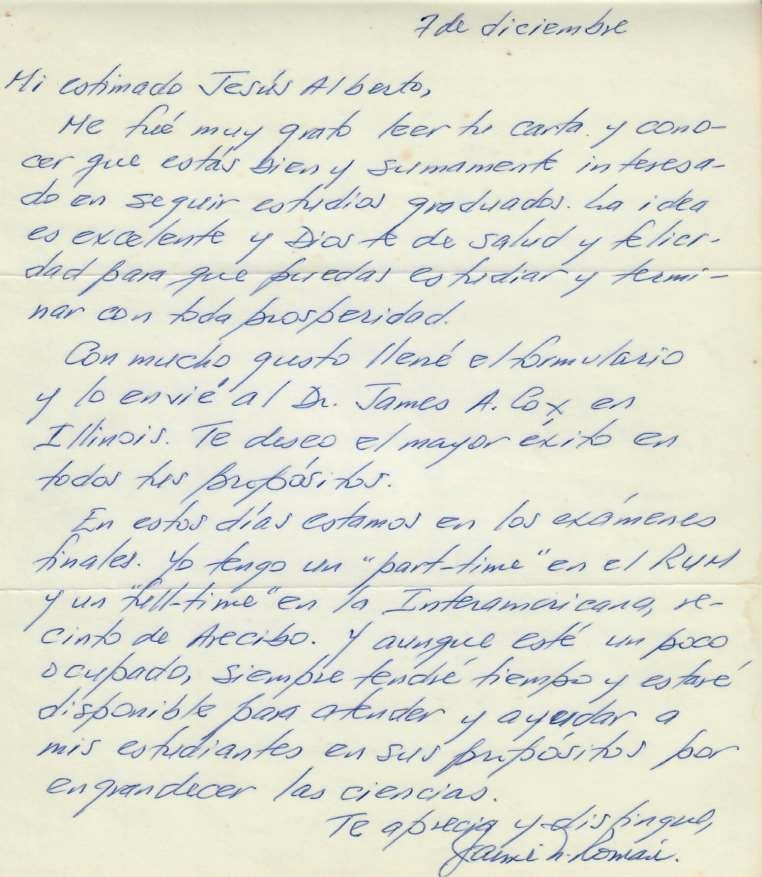 7 de diciembre
Mi estimado Jesús Alberto,
Me fué muy grato leer tu carta y cono-
cer que estás bien y sumamente interesa-
do en seguir estudios graduados. La idea
es excelente y Dios te de salud y felici-
dad para que puedas estudiar y termi-
nar con toda prosperidad.
Con mucho gusto llené el formulario
y lo envié al Dr. James A. Cox en
Illinois. Te deseo el mayor éxito en
todos tus propósitos.
En estos días estamos en los exámenes
finales. Yo tengo un "part-time" en el RUM
y un "full-time" en la Interamericana, re-
cinto de Arecibo. Y aunque esté un poco
ocupado, siempre tendré tiempo y estaré
disponible para atender y ayudar a
mis estudiantes en sus propósitos por
engrandecer las ciencias.
Te aprecia y distingue,
Jaime Román.